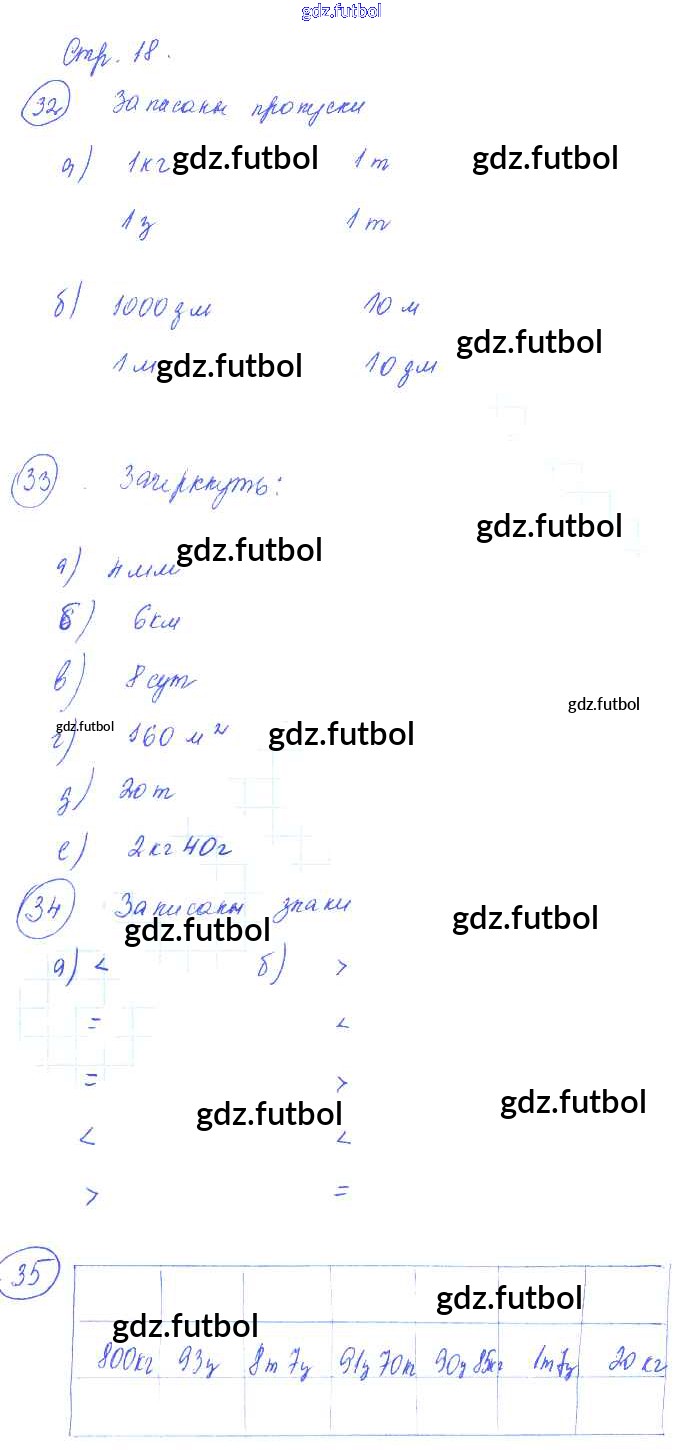 gdz.futbol
Стр. 18.
32 Записаны пропуски
а) 1кг gdz.futbol 1т gdz.futbol
1ц 1т
б) 1000дм 10м
1м gdz.futbol 10дм gdz.futbol
33 Зачеркнуть:
gdz.futbol
а) 4мм gdz.futbol
б) 6км
в) 8сут
gdz.futbol
г) gdz.futbol 160 м² gdz.futbol
д) 20т
е) 2кг 40г
34 Записаны знаки
gdz.futbol gdz.futbol
а) < б) >
= <
= >
gdz.futbol gdz.futbol
< <
> =
35
gdz.futbol gdz.futbol
800кг 93ц 8т 7ц 91ц 70т 90ц 85кг 1т 7ц 20 кг